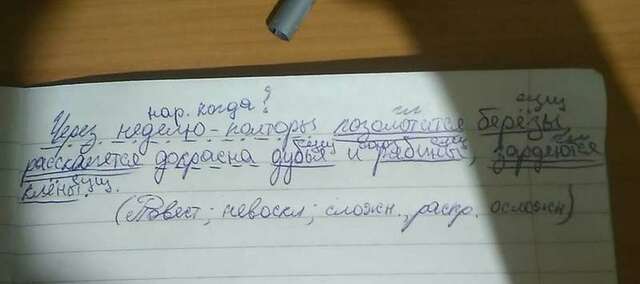 нар. когда?
гл. сущ
Через неделю-полторы позолотятся берёзы
сущ союз сущ гл.
раскалятся докрасна дубья и рябины, зардеются
клёны сущ.
(Повест; невоскл; сложн., распр. осложн)